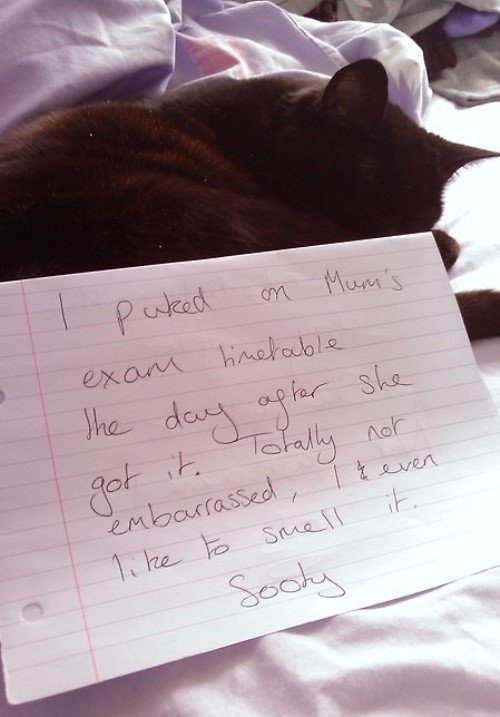 I puked on Mum's
exam timetable
the day after she
got it. Totally not
embarrassed, I & even
like to smell it.
Sooty